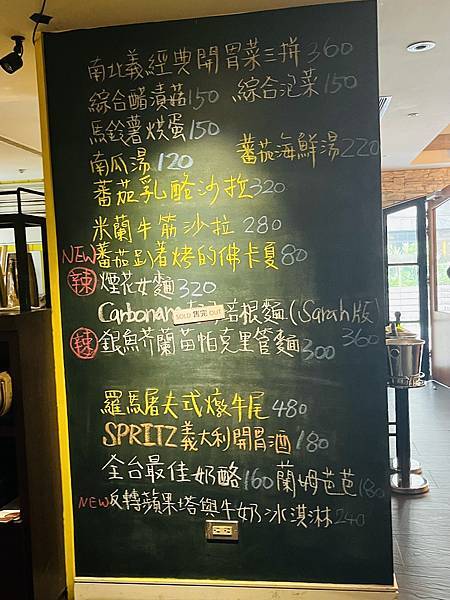 南北義經典開胃菜三拼360
綜合醋漬菇150 綜合泡菜150
馬鈴薯烘蛋150
南瓜湯120 蕃茄海鮮湯220
蕃茄乳酪沙拉320
米蘭牛筋沙拉 280
NEW 蕃茄趴著烤的佛卡夏80
辣 煙花女麵320
Carbonara 培根麵(Sarah版) 360
SOLD 售完 OUT
辣 銀魚芥蘭苗帕克里管麵300
羅馬屠夫式燉牛尾480
SPRITZ義大利開胃酒180
全台最佳奶酪160 蘭姆芭芭180
NEW 反轉蘋果塔與牛奶冰淇淋240